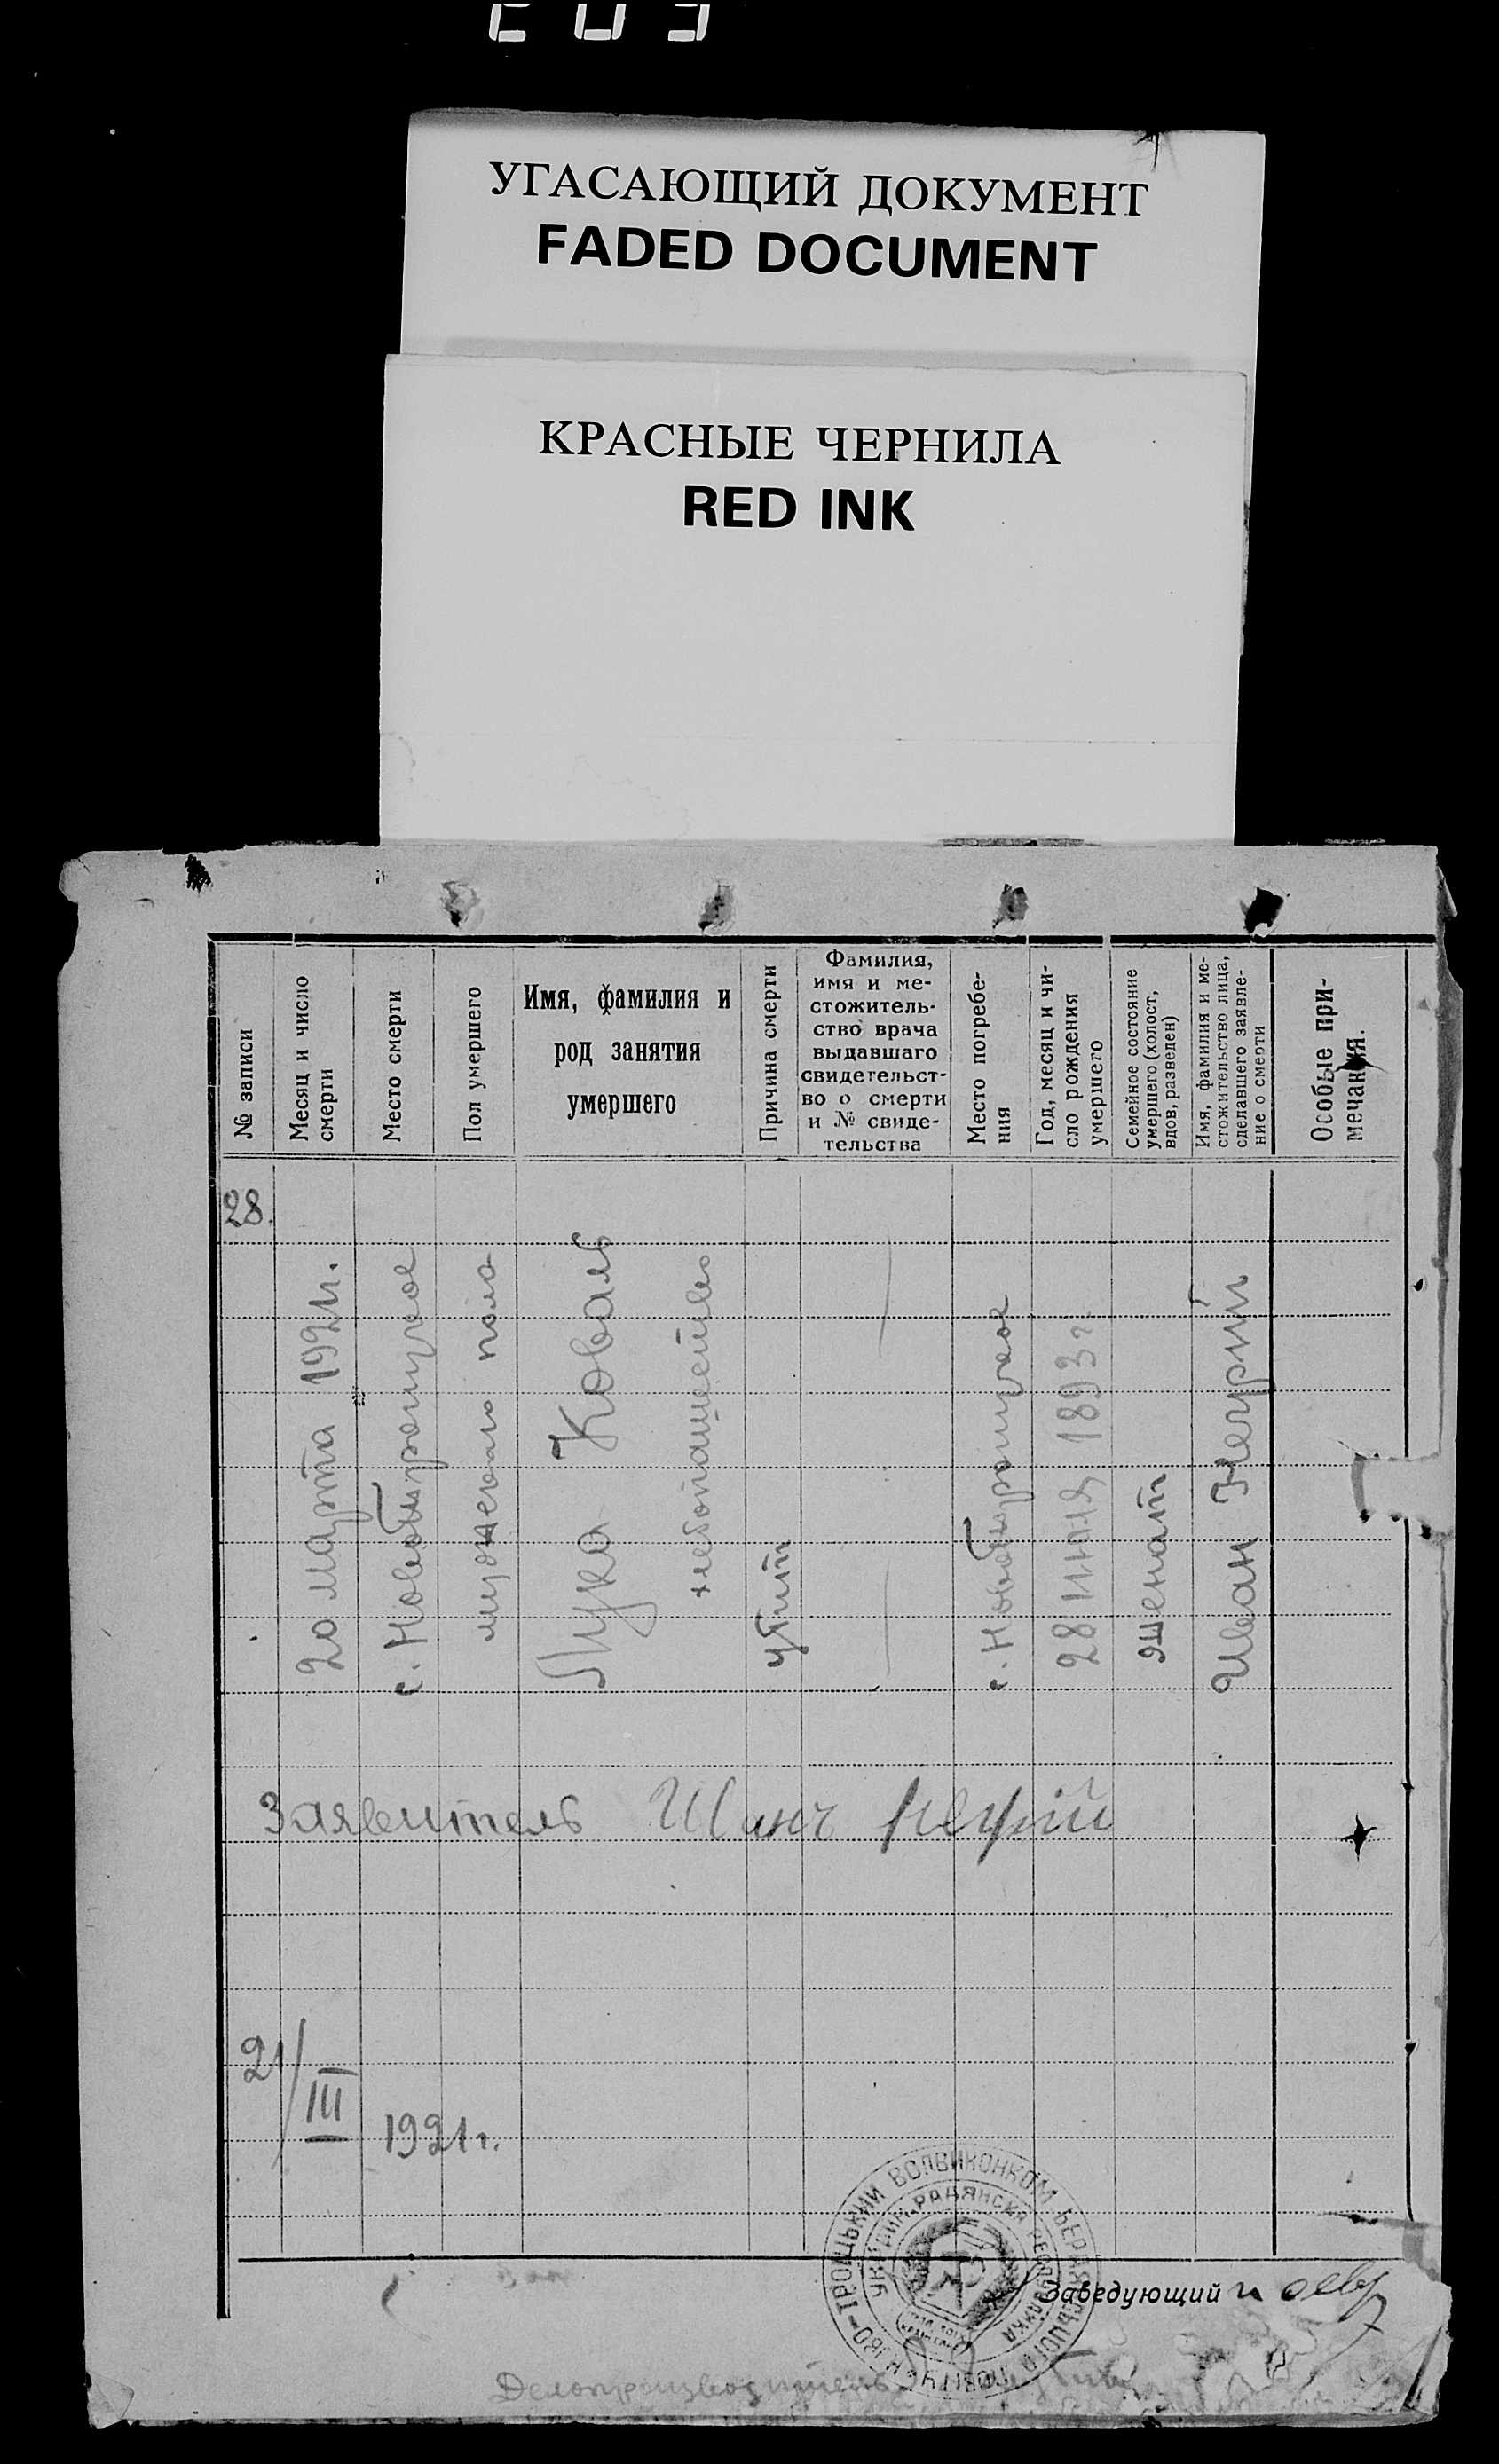 УГАСАЮЩИЙ ДОКУМЕНТ
FADED DOCUMENT
КРАСНЫЕ ЧЕРНИЛА
RED INK
№ записи
Месяц и число
смерти
Место смерти
Пол умершего
Имя, фамилия и
род занятия
умершего
Причина смерти
Фамилия,
имя и ме-
стожитель-
ство врача
выдавшаго
свидетельст-
во о смерти
и № свиде-
тельства
Место погребе-
ния
Год, месяц и чи-
сло рождения
умершего
Семейное состояние
умершего (холост,
вдов, разведен)
Имя, фамилия и ме-
стожительство лица,
сделавшего заявле-
ние о смерти
Особые при-
мечания.
28.
20 марта 1921г.
с. Новотроицкое
мужеского пола
Лука Коваль
хлебопашество
убит
с. Новотроицкое
28 июля 1893 г.
женат
Иван Негрий
Заявитель Иван Негрий
21/III 1921 г.
НОВО-ТРОЇЦЬКИЙ ВОЛВИКОНКОМ БЕРДЯНСЬКОГО
РАДЯНСЬКА РЕСПУБЛИКА
Заведующий
Делопроизводитель